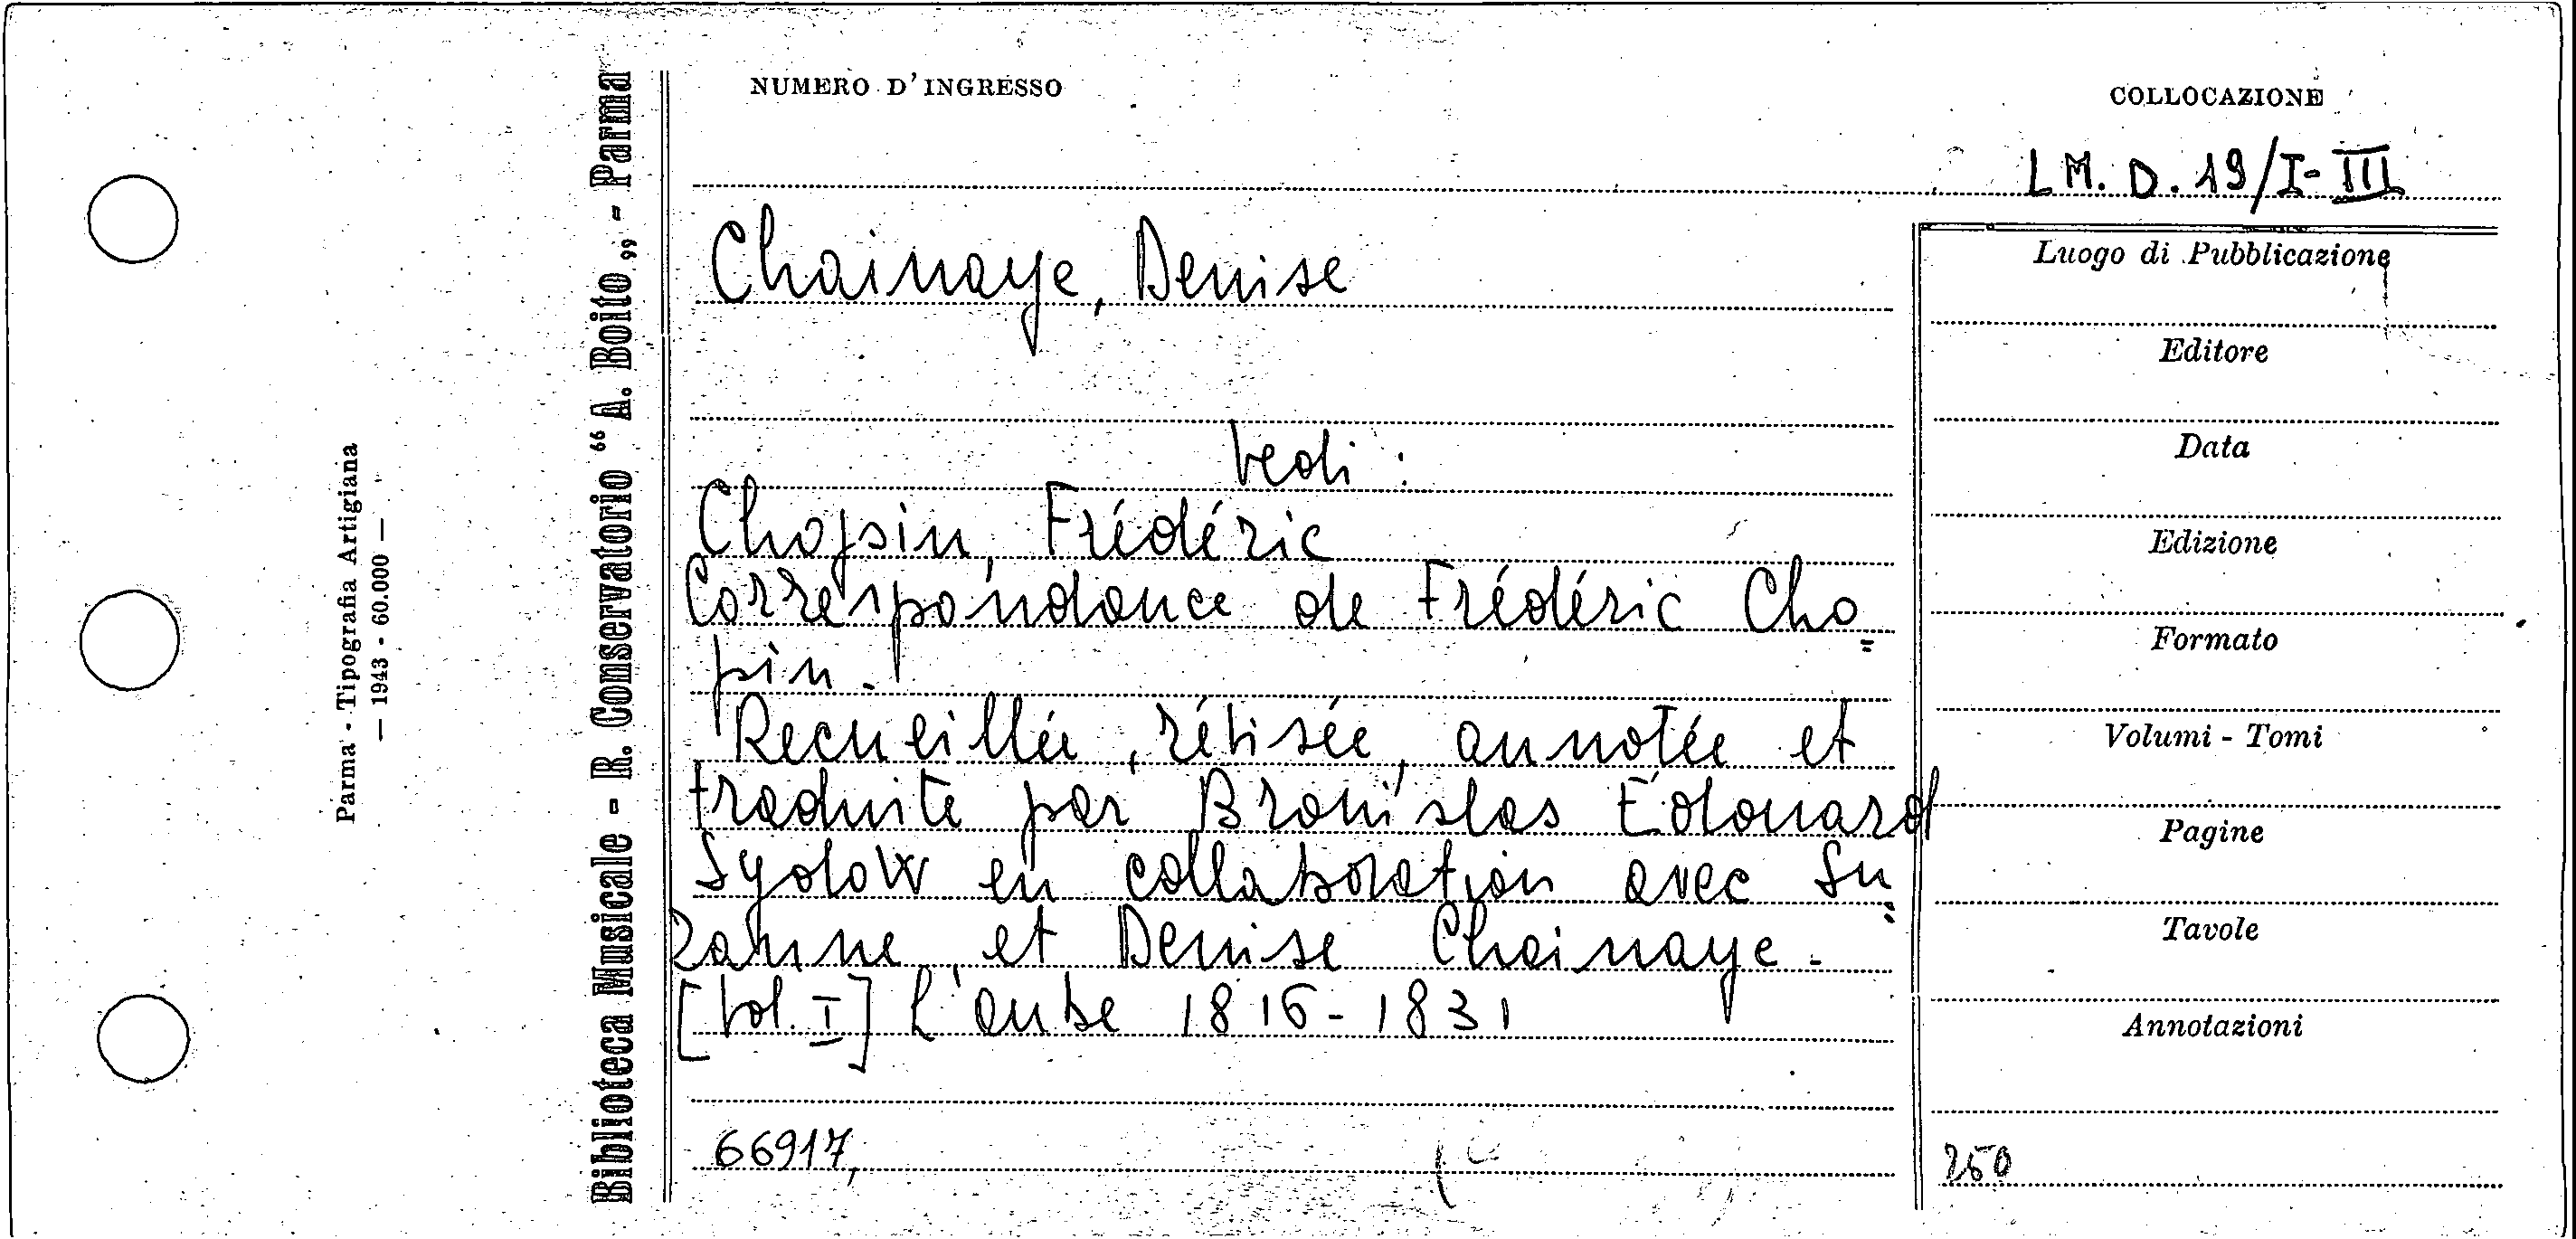 NUMERO D'INGRESSO
COLLOCAZIONE
LM. D. 19/I-III
Chainaye, Denise
vedi:
Chopin, Frédéric
Correspondance de Frédéric Cho=
pin.
Recueillée, révisée, annotée et
traduite par Bronislas Édouard
Sydow en collaboration avec Su=
zanne et Denise Chainaye.
[Vol. I] L'aube 1816-1831
66917,
Luogo di Pubblicazione
Editore
Data
Edizione
Formato
Volumi - Tomi
Pagine
Tavole
Annotazioni
250
Biblioteca Musicale - R. Conservatorio “A. Boito„ - Parma
Parma - Tipografia Artigiana
— 1943 - 60.000 —